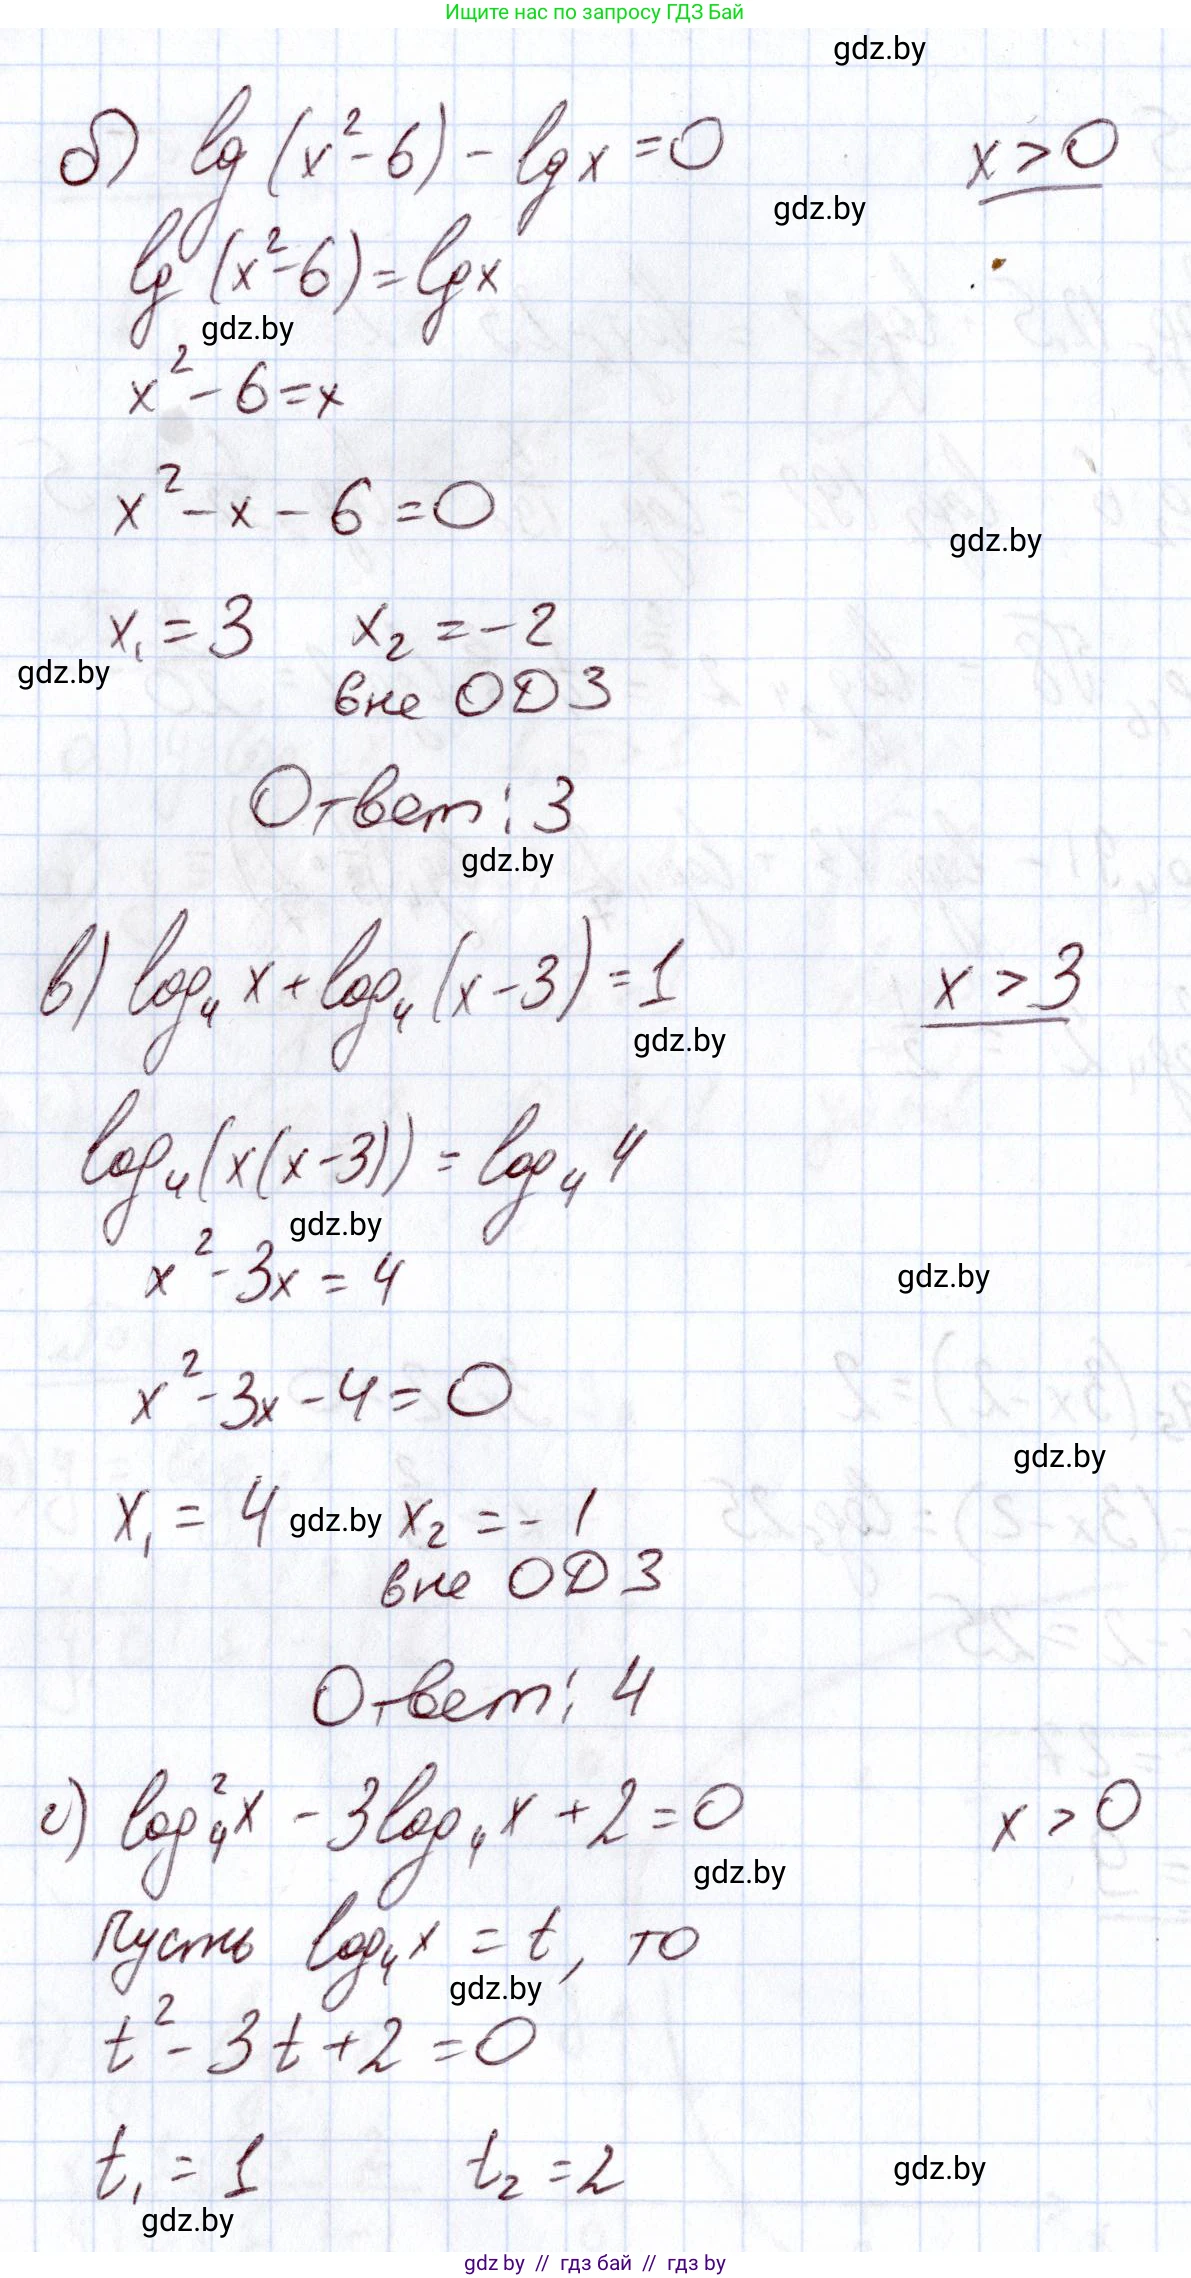 Ищите нас по запросу ГДЗ Бай
gdz.by
б) lg(x²-6) - lgx = 0 x > 0
gdz.by
lg(x²-6) = lgx
gdz.by
x² - 6 = x
x² - x - 6 = 0
gdz.by
x₁ = 3 x₂ = -2
gdz.by
вне ОДЗ
Ответ: 3
gdz.by
в) log₄x + log₄(x-3) = 1 x > 3
gdz.by
log₄(x(x-3)) = log₄4
gdz.by
x² - 3x = 4
gdz.by
x² - 3x - 4 = 0
gdz.by
x₁ = 4 gdz.by x₂ = -1
вне ОДЗ
Ответ: 4
г) log₄²x - 3log₄x + 2 = 0 x > 0
gdz.by
Пусть log₄x = t, то
gdz.by
t² - 3t + 2 = 0
t₁ = 1 t₂ = 2
gdz.by
gdz.by
gdz by // гдз бай // гдз by